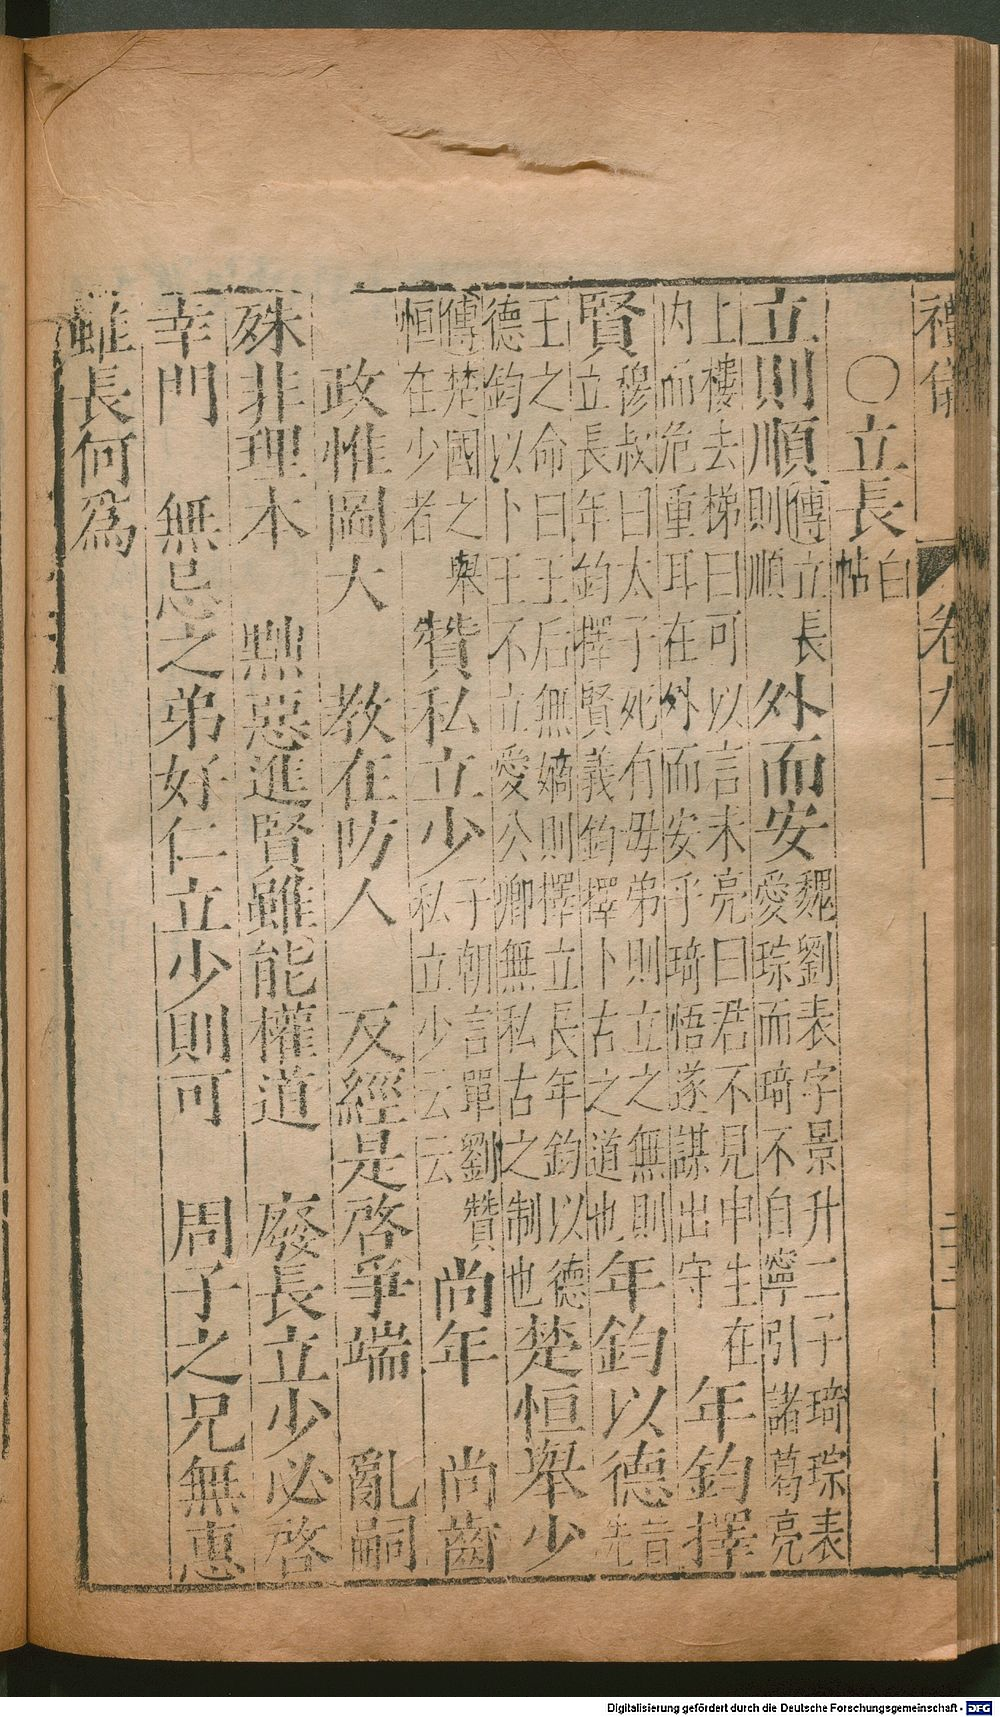 禮儀 卷九
○立長 白帖
立則順 傳立長則順 外而安 魏劉表字景升二子琦琮表愛琮而琦不自寧引諸葛亮
上樓去梯曰可以言未亮曰君不見申生在內而危重耳在外而安乎琦悟遂謀出守 年鈞擇
賢 穆叔曰太子死有母弟則立之無則立長年鈞擇賢義鈞擇卜古之道也 年鈞以德 昔先
王之命曰王后無嫡則擇立長年鈞以德德鈞以卜王不立愛公卿無私古之制也 楚恒舉少
傳楚國之舉恒在少者 贊私立少 子朝言單劉贊私立少云云 尚年 尚齒
政惟圖大 教在防人 反經是啓爭端 亂嗣
殊非理本 黜惡進賢雖能權道 廢長立少必啓
幸門 無忌之弟好仁立少則可 周子之兄無惠
雖長何爲
Digitalisierung gefördert durch die Deutsche Forschungsgemeinschaft - DFG